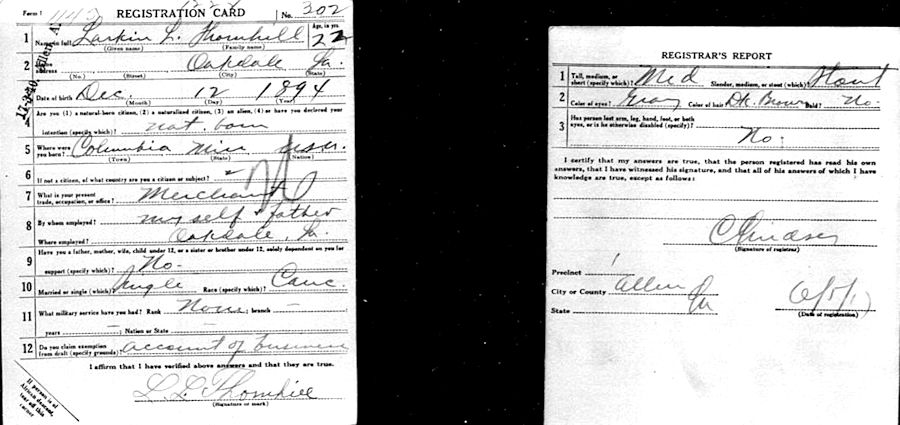 Form 1
REGISTRATION CARD No. 302
1 Name in full Larkin L. Thornhill Age, in yrs. 22
(Given name) (Family name)
2 address Oakdale La.
(No.) (Street) (City) (State)
3 Date of birth Dec. 12 1894
(Month) (Day) (Year)
Are you (1) a natural-born citizen, (2) a naturalized citizen, (3) an alien, (4) or have you declared your
4 intention (specify which)? nat. born
5 Where were you born? Columbia Miss USA
(Town) (State) (Nation)
6 If not a citizen, of what country are you a citizen or subject? -
7 What is your present trade, occupation, or office? Merchant
8 By whom employed? my self & father
Where employed? Oakdale, La.
9 Have you a father, mother, wife, child under 12, or a sister or brother under 12, solely dependent on you for
support (specify which)? No
10 Married or single (which)? Single Race (specify which)? Cauc.
11 What military service have you had? Rank None ; branch —
years — ; Nation or State —
12 Do you claim exemption from draft (specify grounds)? account of business
I affirm that I have verified above answers and that they are true.
L. L. Thornhill
(Signature or mark)
If person is of
African descent,
tear off this
corner
REGISTRAR'S REPORT
1 Tall, medium, or short (specify which)? Med Slender, medium, or stout (which)? Stout
2 Color of eyes? Gray Color of hair? Dk. Brown Bald? No.
3 Has person lost arm, leg, hand, foot, or both
eyes, or is he otherwise disabled (specify)?
No.
I certify that my answers are true, that the person registered has read his own
answers, that I have witnessed his signature, and that all of his answers of which I have
knowledge are true, except as follows:
(Signature of registrar)
Precinct 1
City or County Allen
State La
6/5/17
(Date of registration)